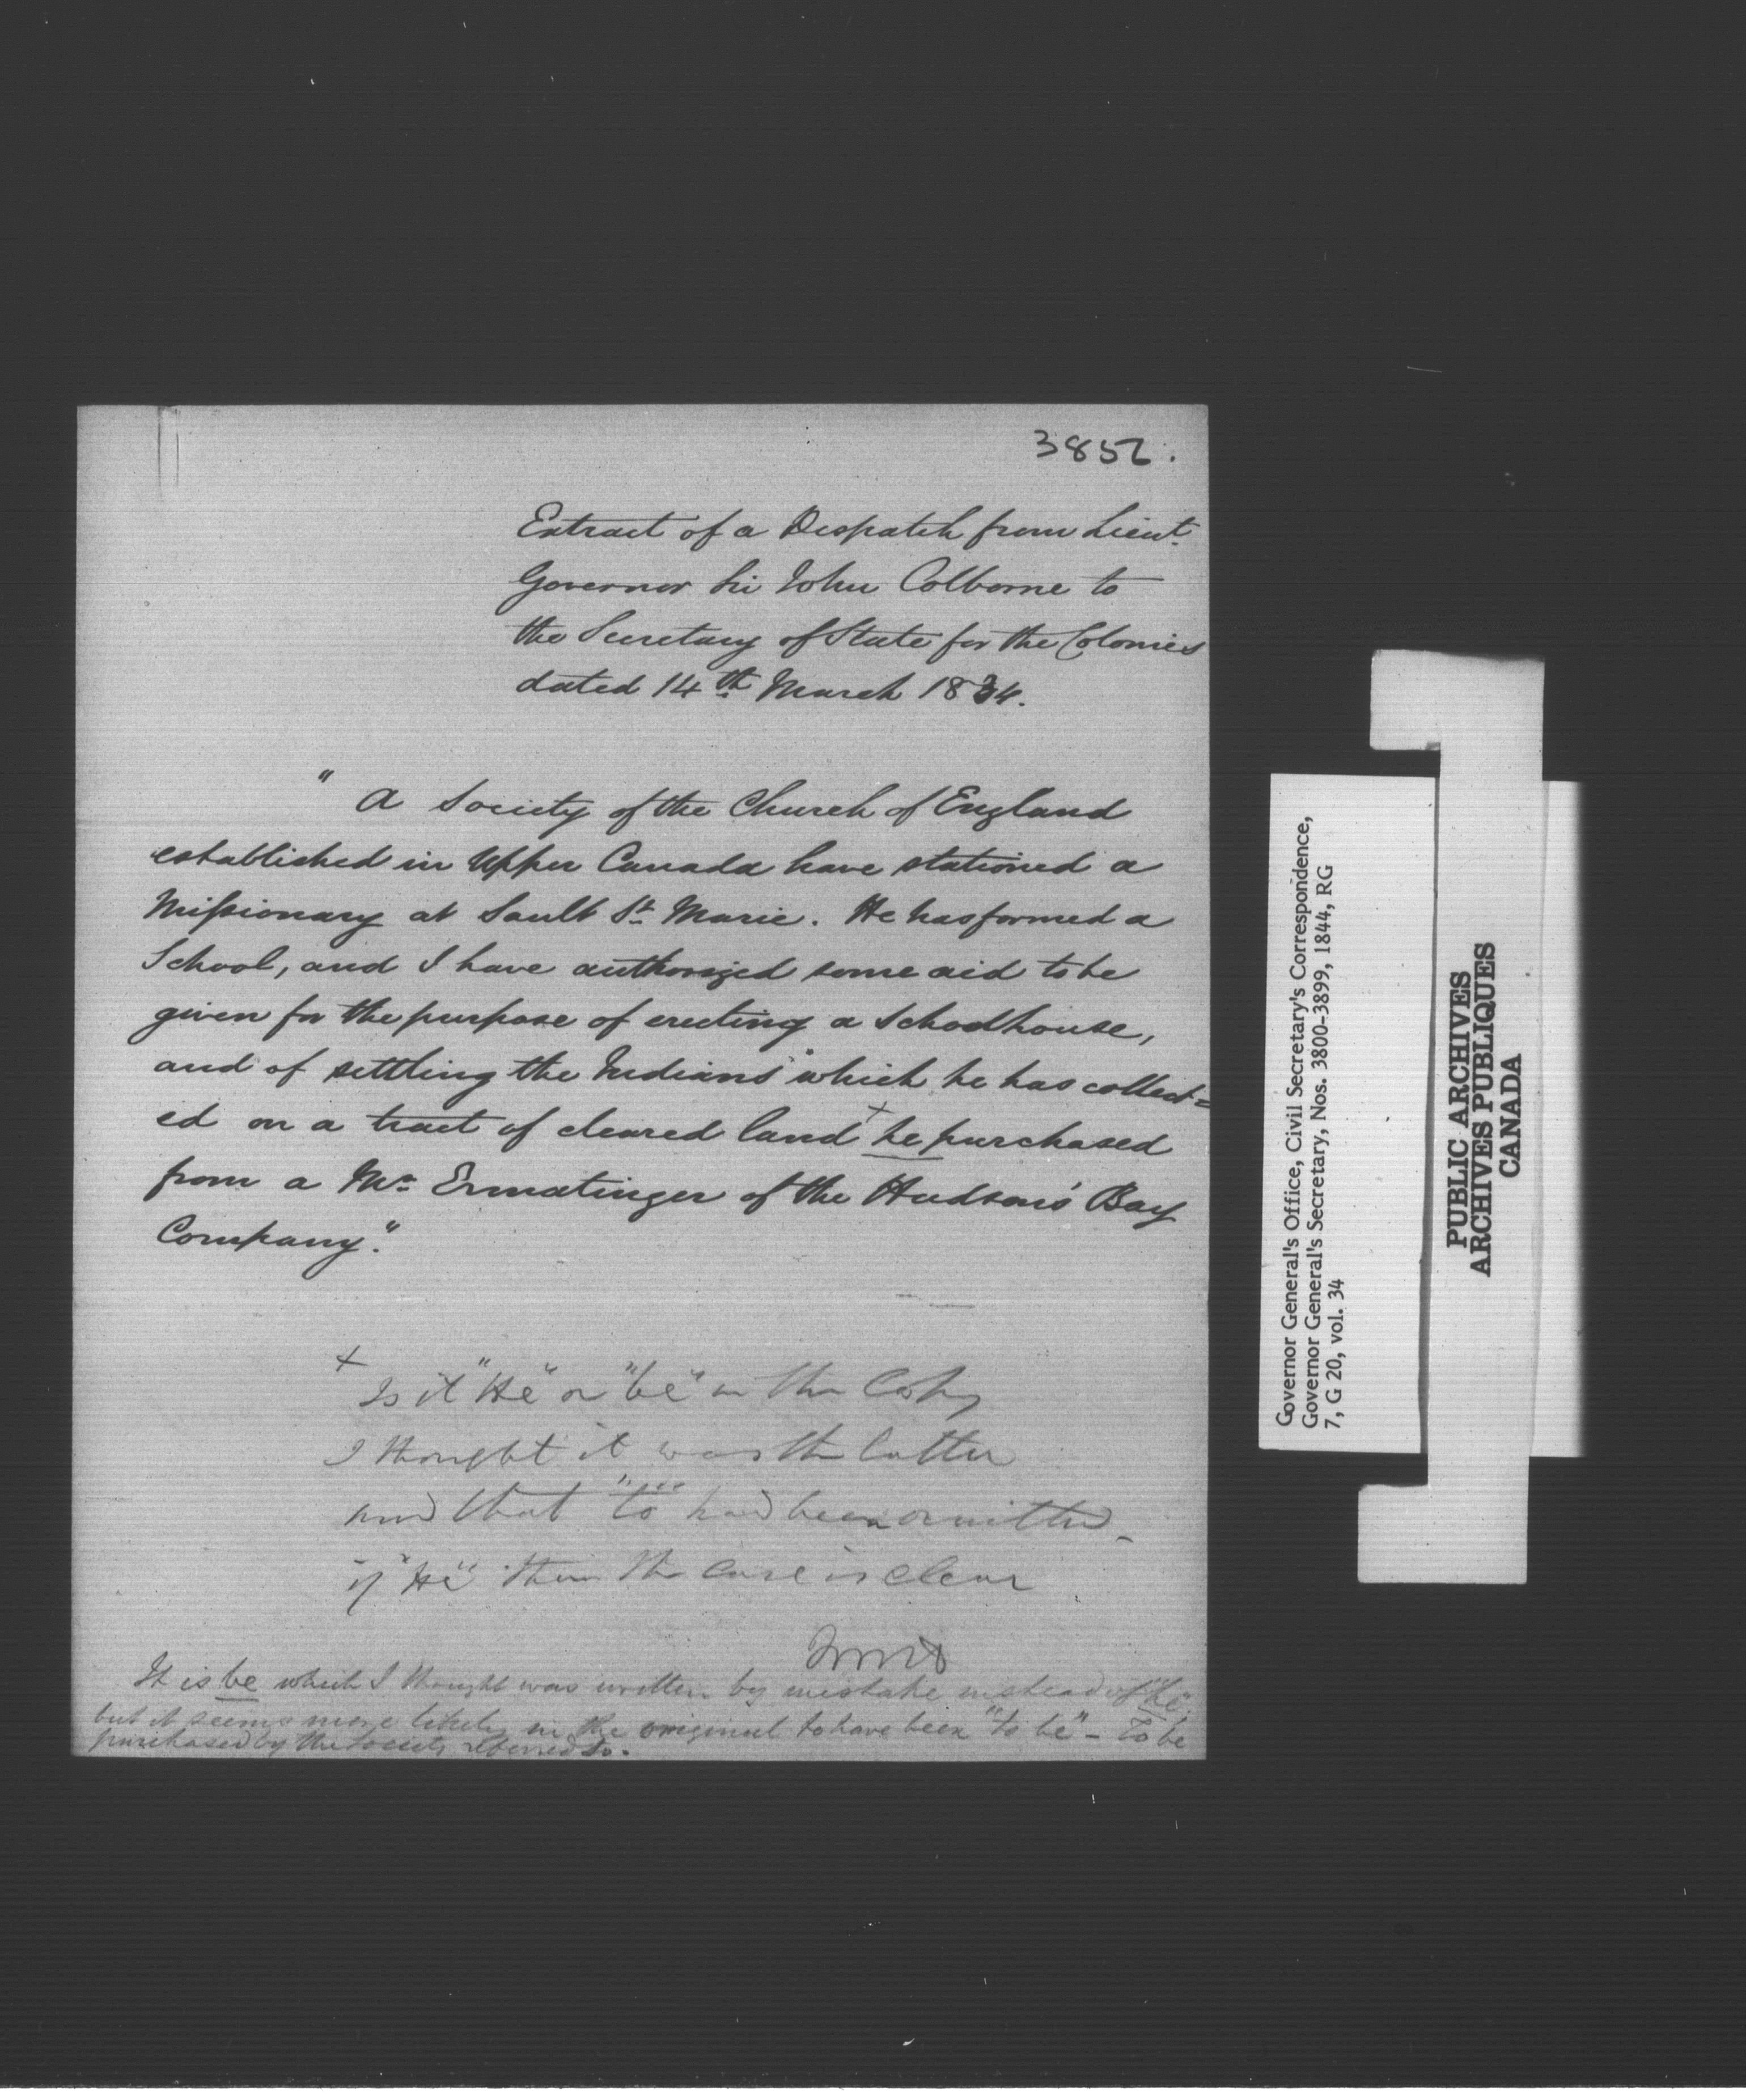 3852.
Extract of a Despatch from Lieut.
Governor Sir John Colborne to
the Secretary of State for the Colonies
dated 14th March 1834.
" A Society of the Church of England
established in Upper Canada have stationed a
Missionary at Sault St. Marie. He has formed a
School, and I have authorized some aid to be
given for the purpose of erecting a Schoolhouse,
and of settling the Indians which he has collect=
ed on a tract of cleared land + he purchased
from a Mr. Ermatinger of the Hudson's Bay
Company."
+ Is it "He" or "be" in the Copy
I thought it was the latter
and that "to" had been omitted -
if "He" then the case is clear
It is be which I thought was written by mistake instead of "he",
but it seems more likely in the original to have been "to be" - to be
purchased by the Society referred to.
Governor General's Office, Civil Secretary's Correspondence,
Governor General's Secretary, Nos. 3800-3899, 1844, RG
7, G 20, vol. 34
PUBLIC ARCHIVES
ARCHIVES PUBLIQUES
CANADA